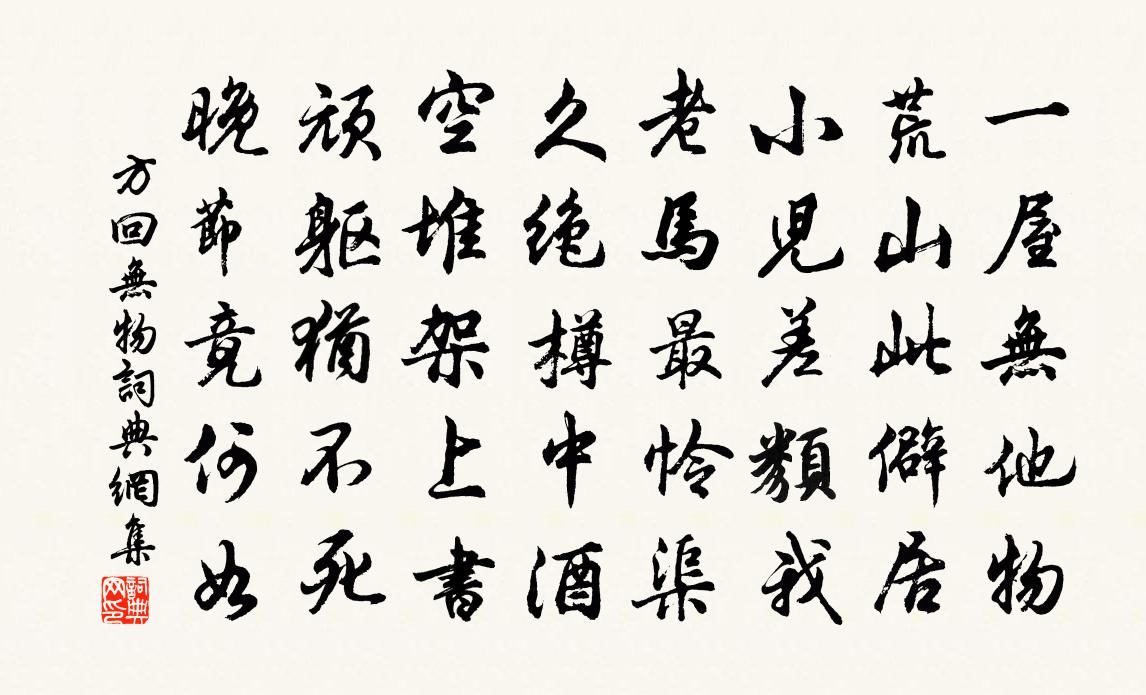 一屋無他物
荒山此僻居
小児差類我
老馬最怜渠
久絶樽中酒
空堆架上書
頑軀猶不死
晚節竟何如
方回無物詞典網集
詞典網印